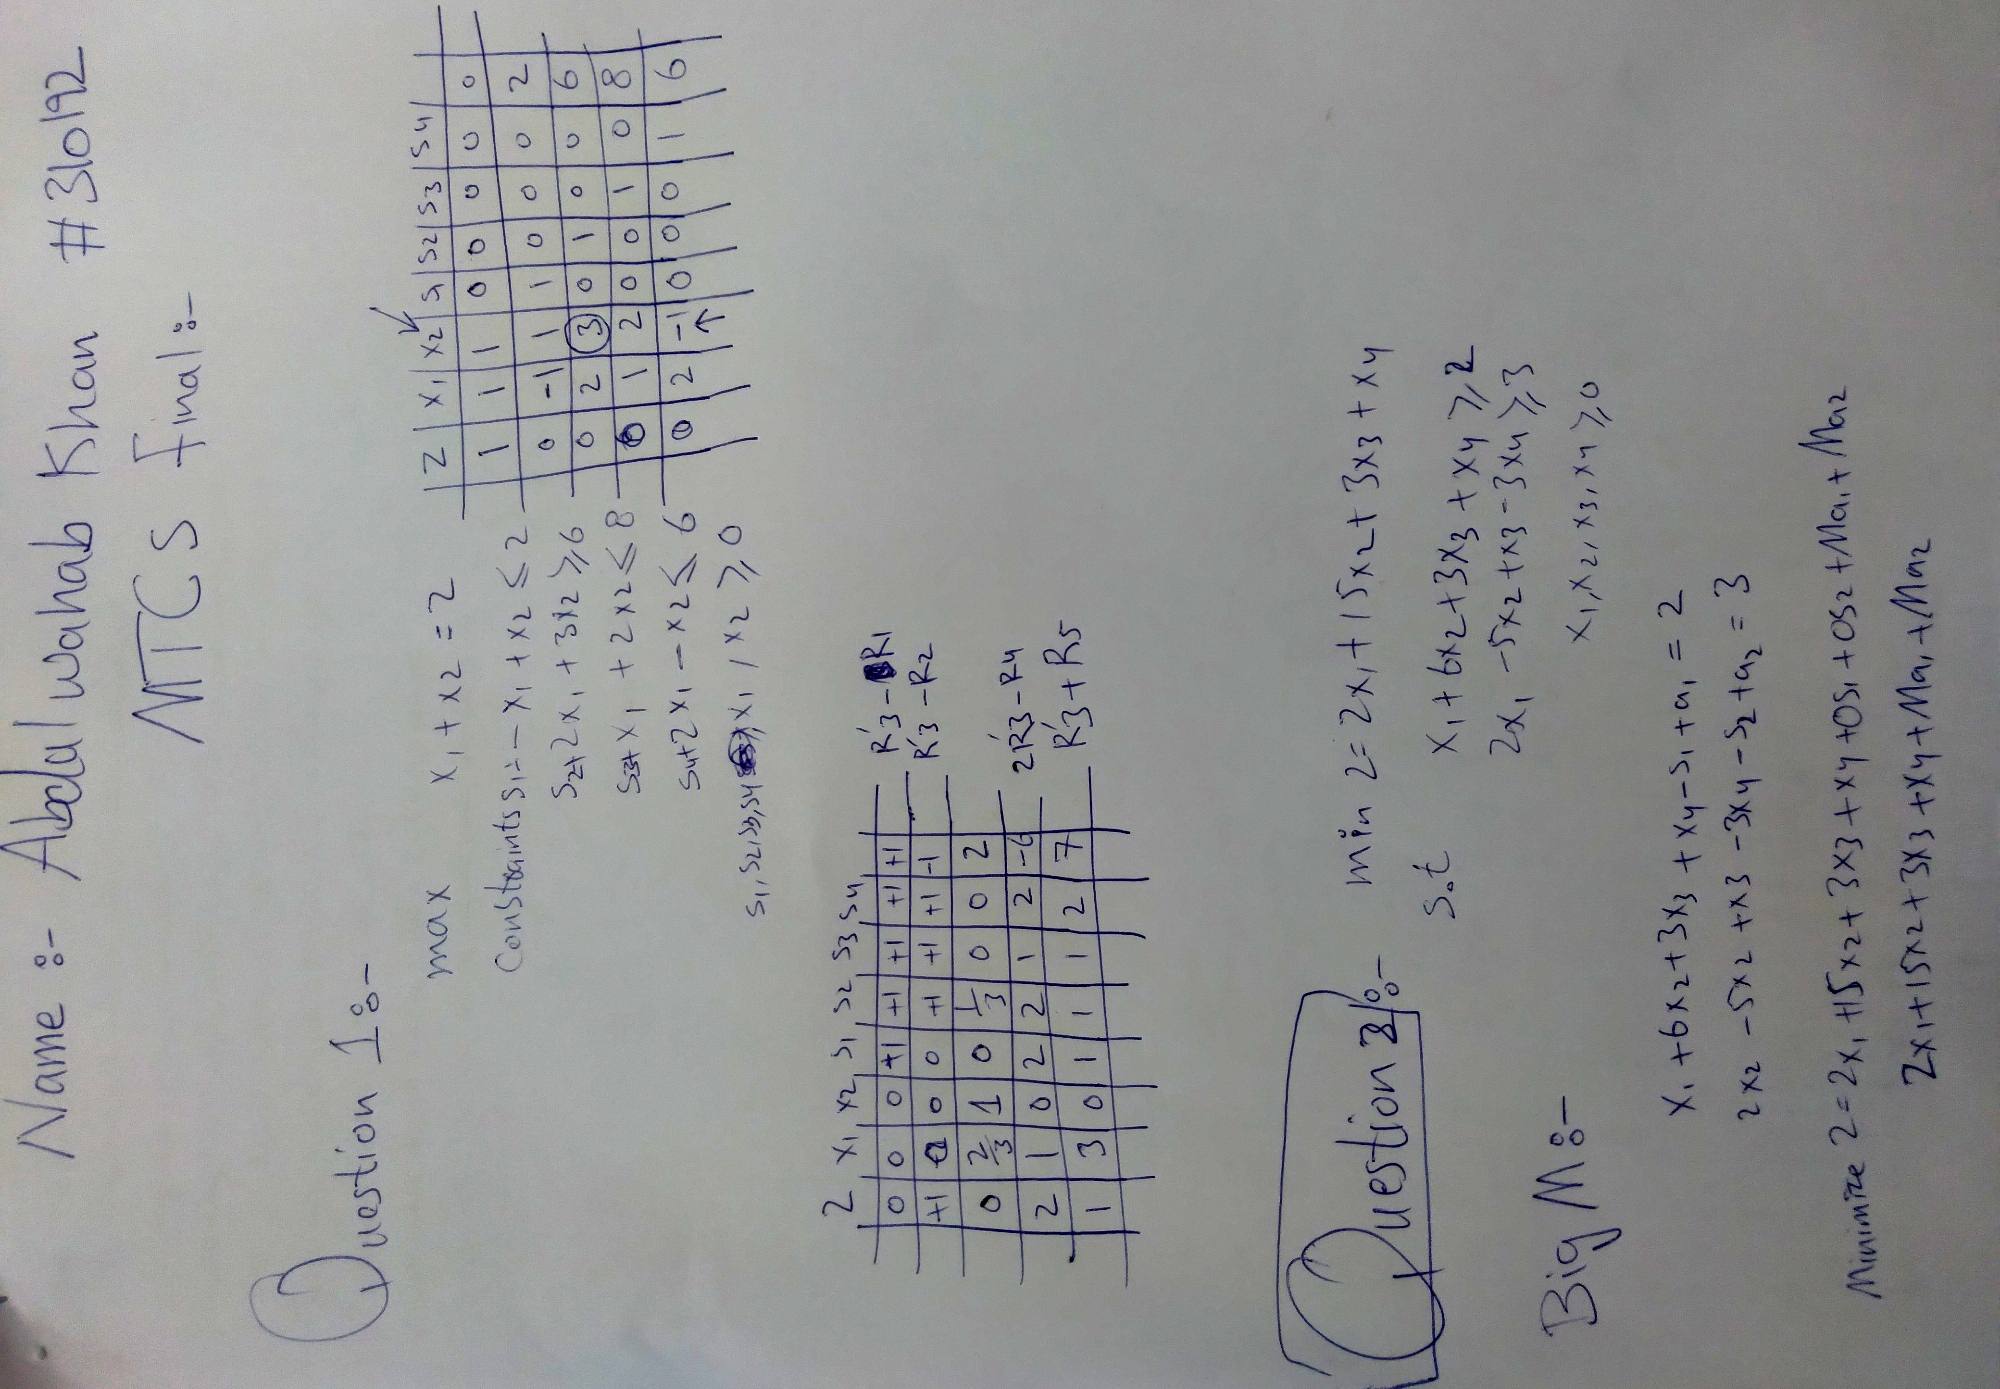 Name :- Abdul wahab Khan #310192
NTCS Final :-
Question 1 :-
max x1 + x2 = 2
Constraints S1 = - x1 + x2 ≤ 2
S2+ 2x1 + 3x2 ≥ 6
S3+ x1 + 2x2 ≤ 8
S4+ 2x1 - x2 ≤ 6
S1, S2, S3, S4 x1, x2 ≥ 0
Z x1 x2 S1 S2 S3 S4
1 1 1 0 0 0 0 0
0 -1 1 1 0 0 0 2
0 2 3 0 1 0 0 6
0 1 2 0 0 1 0 8
0 2 -1 0 0 0 1 6
Z x1 x2 S1 S2 S3 S4
0 0 0 +1 +1 +1 +1 +1 R'3 - R1
+1 0 0 0 +1 +1 +1 -1 R'3 - R2
0 2/3 1 0 1/3 0 0 2
2 1 0 2 2 1 2 -6 2R'3 - R4
1 3 0 1 1 1 2 7 R'3 + R5
Question 2 :- min Z = 2x1 + 15x2 + 3x3 + x4
S.t x1 + 6x2 + 3x3 + x4 ≥ 2
2x1 - 5x2 + x3 - 3x4 ≥ 3
x1, x2, x3, x4 ≥ 0
Big M :-
x1 + 6x2 + 3x3 + x4 - S1 + a1 = 2
2x2 - 5x2 + x3 - 3x4 - S2 + a2 = 3
Minimize Z = 2x1 + 15x2 + 3x3 + x4 + 0S1 + 0S2 + Ma1 + Ma2
2x1 + 15x2 + 3x3 + x4 + Ma1 + Ma2